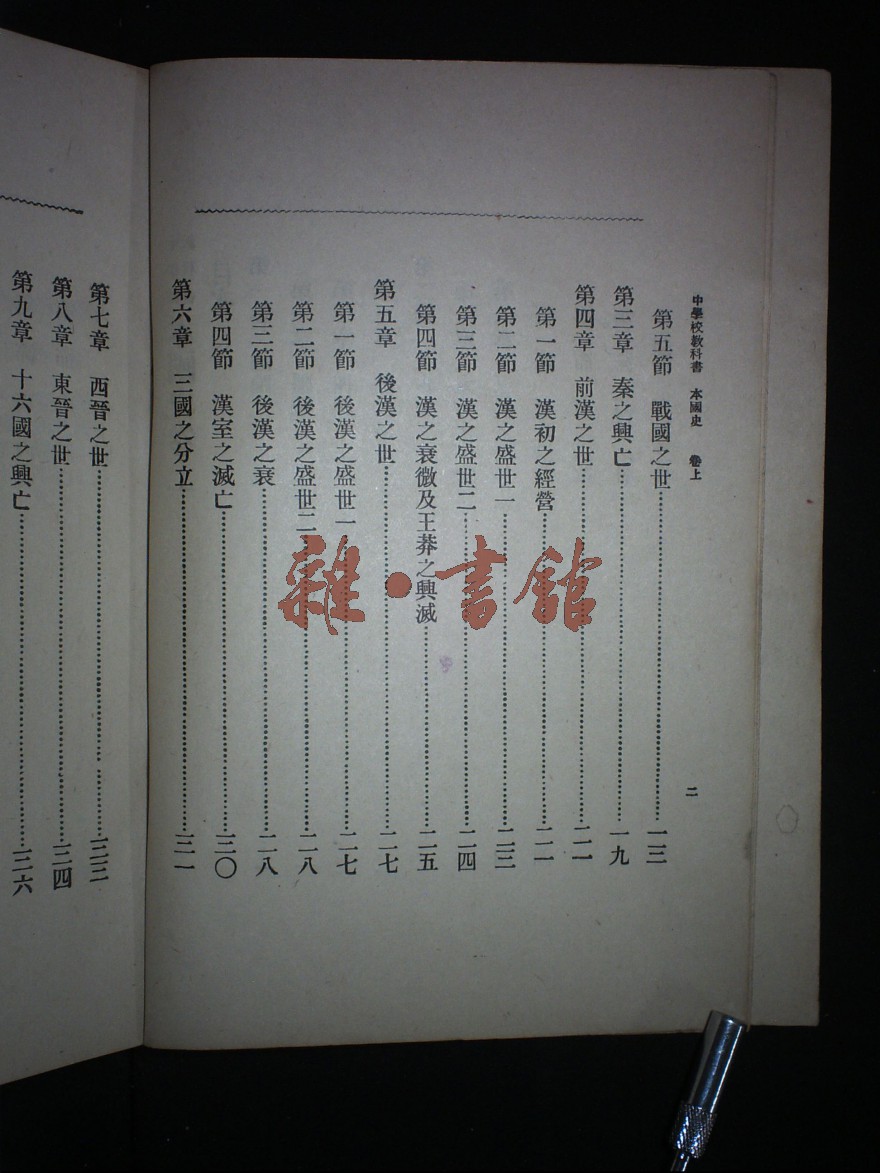 中學校教科書　本國史　卷上
二
第五節　戰國之世 一三
第三章　秦之興亡 一九
第四章　前漢之世 二一
第一節　漢初之經營 二一
第二節　漢之盛世一 二三
第三節　漢之盛世二 二四
第四節　漢之衰微及王莽之興滅 二五
第五章　後漢之世 二七
第一節　後漢之盛世一 二七
第二節　後漢之盛世二 二八
第三節　後漢之衰 二八
第四節　漢室之滅亡 三〇
第六章　三國之分立 三一
第七章　西晉之世 三三
第八章　東晉之世 三四
第九章　十六國之興亡 三六
雜·書館